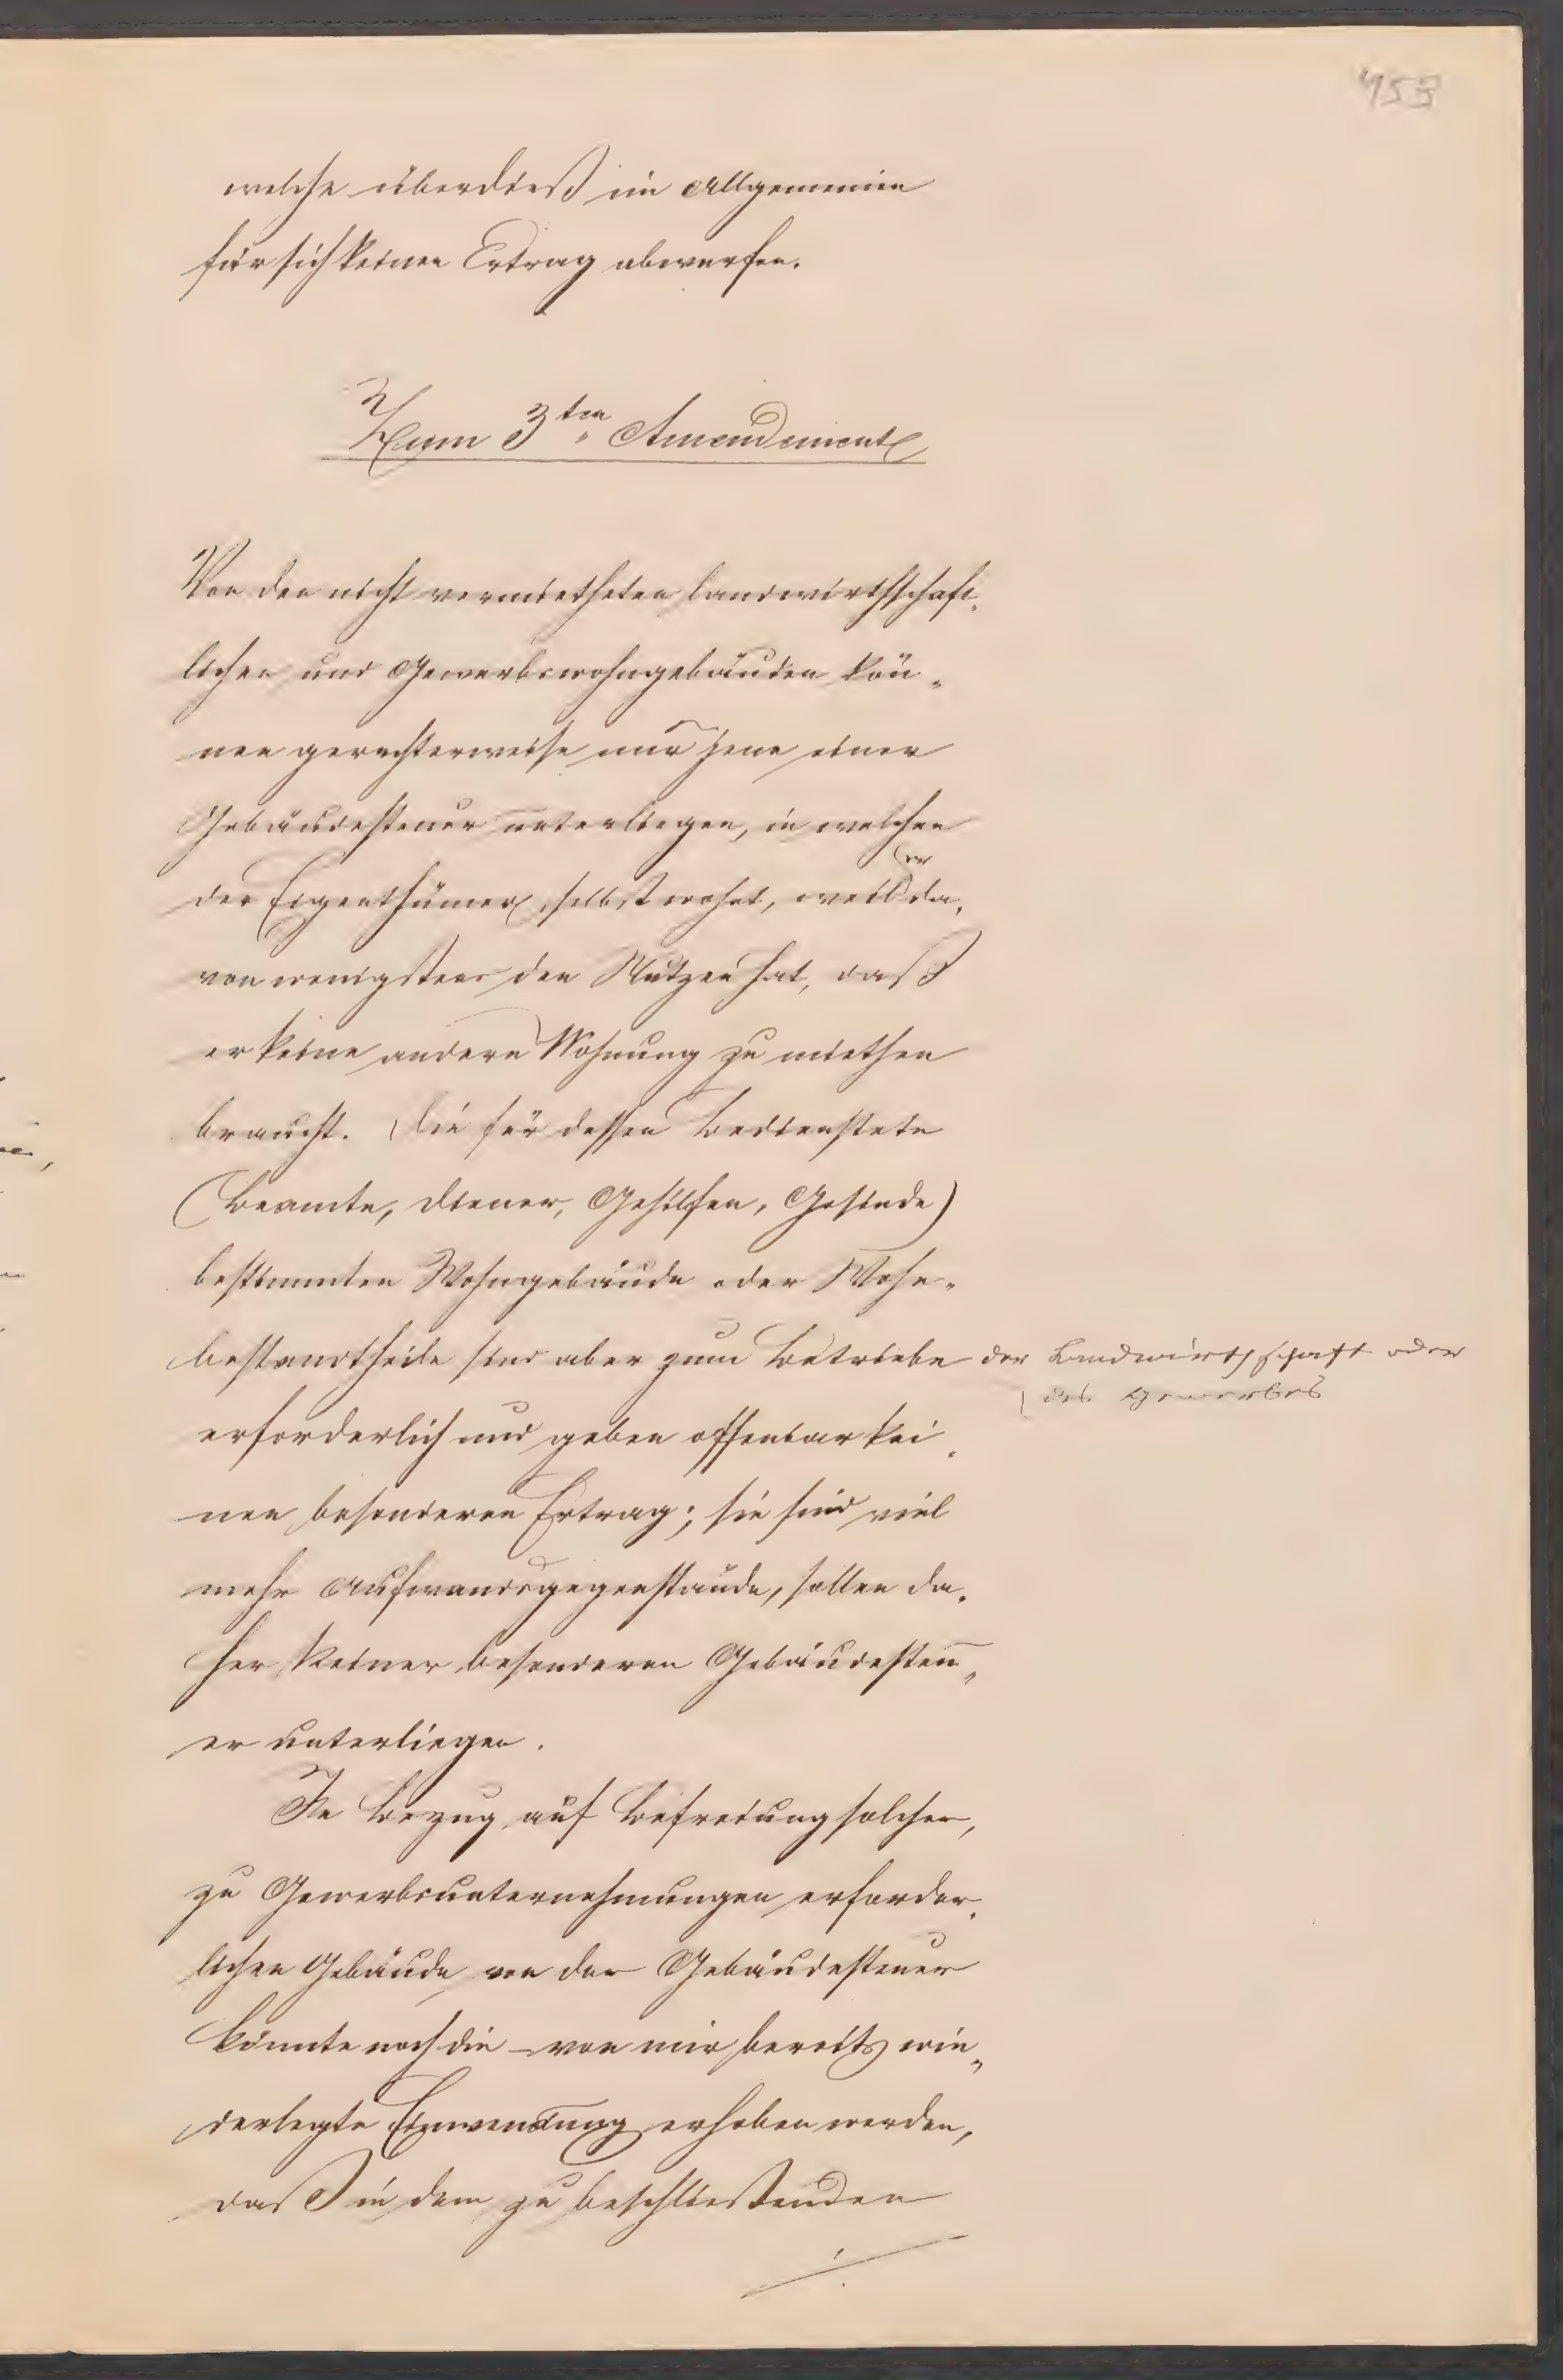 453
welche überdieß im Allgemeinen
für sich keinen Ertrag abwerfen.
Zum 3ten Amendement
Von den nicht vermietheten landwirthschaft-
lichen und Gewerbswohngebäuden kön-
nen gerechterweise nur jene einer
Gebäudesteuer unterliegen, in welchen
der Eigenthümer selbst wohnt, weil er da-
von wenigstens den Nutzen hat, daß
er keine andere Wohnung zu miethen
braucht. Die für dessen Bedienstete
(Beamte, Diener, Gehilfen, Gesinde)
bestimmten Wohngebäude oder Wohn-
bestandtheile sind aber zum Betriebe der Landwirthschaft oder
des Gewerbes
erforderlich und geben offenbar kei-
nen besonderen Ertrag; sie sind viel
mehr Aufwandsgegenstände, sollen da-
her keiner besonderen Gebäudesteu-
er unterliegen.
In Bezug auf Befreiung solcher,
zu Gewerbsunternehmungen erforder-
lichen Gebäude von der Gebäudesteuer
könnte noch die – von mir bereits wie-
derlegte Einwendung erhoben werden,
daß in dem zu beschließenden
./.